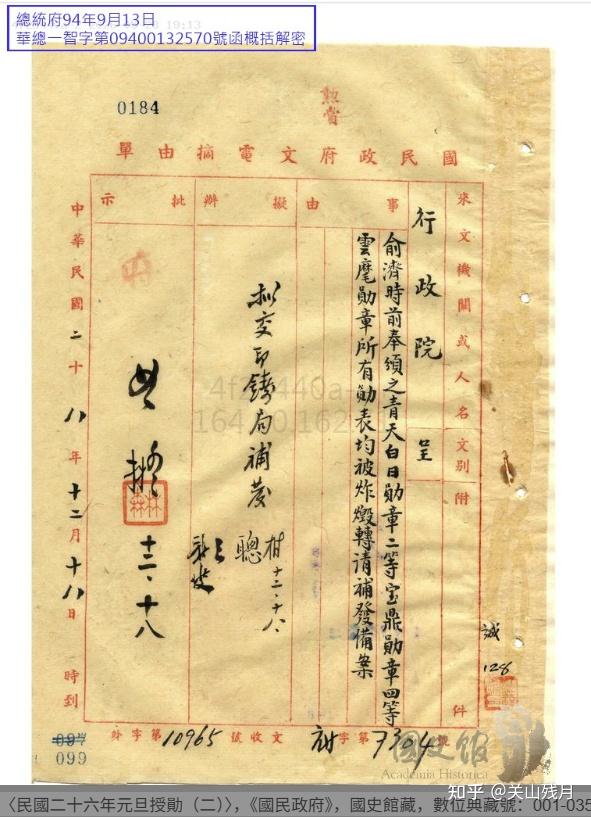 總統府94年9月13日
華總一智字第09400132570號函概括解密
19:13
0184
勲賞
國民政府文電摘由單
來文機關或人名
文別
附
件
行政院
呈
事由
俞濟時前奉頒之青天白日勛章二等宝鼎勛章四等
雲麾勛章所有勛表均被炸燬轉請補發備案
擬辦
拟交印鑄局補發
柑十二、十八、
聰
批示
照拟
十二、十八
中華民國二十八年十二月十八日
時到
誠
128
外字第10965號收文
字第7304號
097
099
國史館
Academia Historica
知乎 @关山残月
〈民國二十六年元旦授勛（二）〉，《國民政府》，國史館藏，數位典藏號：001-035